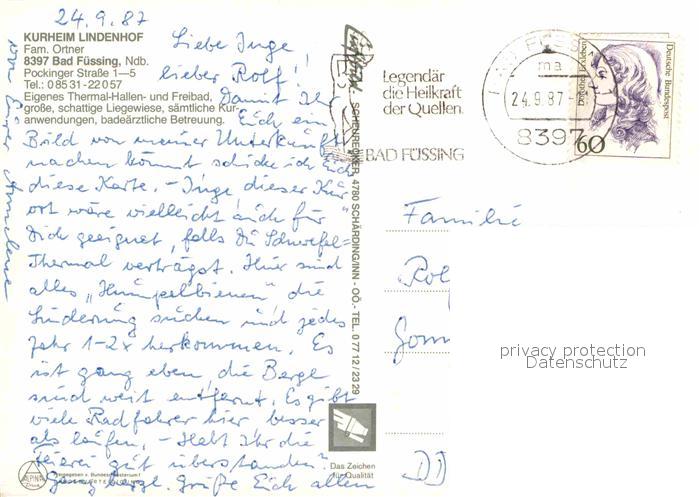 24.9.87
KURHEIM LINDENHOF
Fam. Ortner
8397 Bad Füssing, Ndb.
Pockinger Straße 1—5
Tel.: 0 85 31 - 22 0 57
Eigenes Thermal-Hallen- und Freibad,
große, schattige Liegewiese, sämtliche Kur-
anwendungen, badeärztliche Betreuung.
Liebe Inge,
lieber Rolf!
Damit Ihr
Euch ein
Bild von meiner Unterkunft
machen könnt schicke ich Euch
diese Karte. – Inge dieser Kur
ort wäre vielleicht auch für
Dich geeignet, falls Du Schwefel=
Thermal verträgst. Hier sind
alles „Humpelbienen" die
Linderung suchen und jedes
Jahr 1-2x herkommen. Es
ist ganz eben, die Berge
sind weit entfernt. Es gibt
viele Radfahrer hier besser
als laufen. – Habt Ihr die
gut überstanden?
Grüße Euch allen
von Eurer Annelene
SCHENBECKER, 4780 SCHÄRDING/INN - OÖ. - TEL. 0 77 12 / 23 29
Das Zeichen
für Qualität
ALPINA
Legendär
die Heilkraft
der Quellen.
BAD FÜSSING
24.9.87
8397
Deutsche Bundespost
60
Familie
Rol
Som
privacy protection
Datenschutz